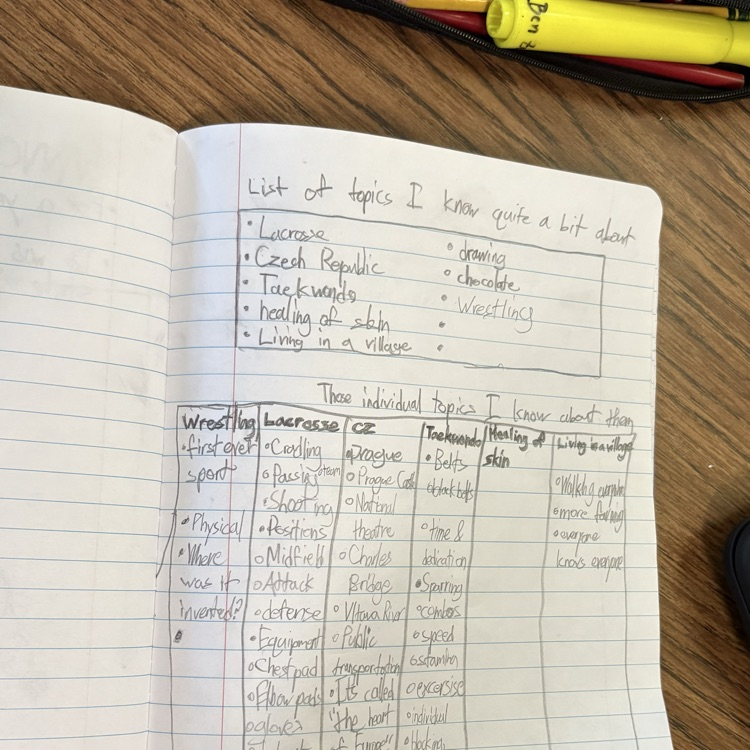 Ben
List of topics I know quite a bit about
• Lacrosse
• Czech Republic
• Taekwondo
• healing of skin
• Living in a village
• drawing
• chocolate
• Wrestling
•
•
Those individual topics I know about them
Wrestling
• first ever
sport
• Physical
• Where
was it
invented?
•
Lacrosse
• Cradling
• Passing team
• Shooting
• Positions
• Midfield
• Attack
• defense
• Equipment
• Chestpad
• Elbow pads
• gloves
CZ
• Prague
• Prague
• National
theatre
• Charles
Bridge
• Vltava River
• Public
transportation
• It's called
"the heart
of Europe"
Taekwondo
• Belts
• black belts
• time &
dedication
• Sparring
• combos
• speed
• stamina
• excersise
• individual
• blocking
Healing of
skin
Living in a village
• Walking
• more
• everyone
knows everyone